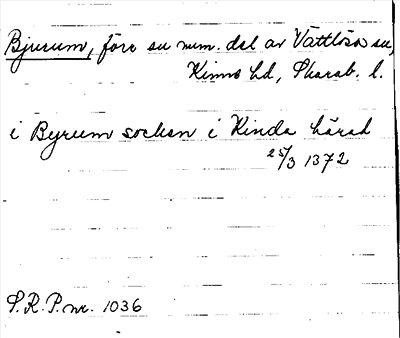 Bjurum, förr su num. del av Vättlösa su,
Kinne hd, Skarab. l.
i Byrum socken i Kinda härad
25/3 1372
S.R.P. nr. 1036